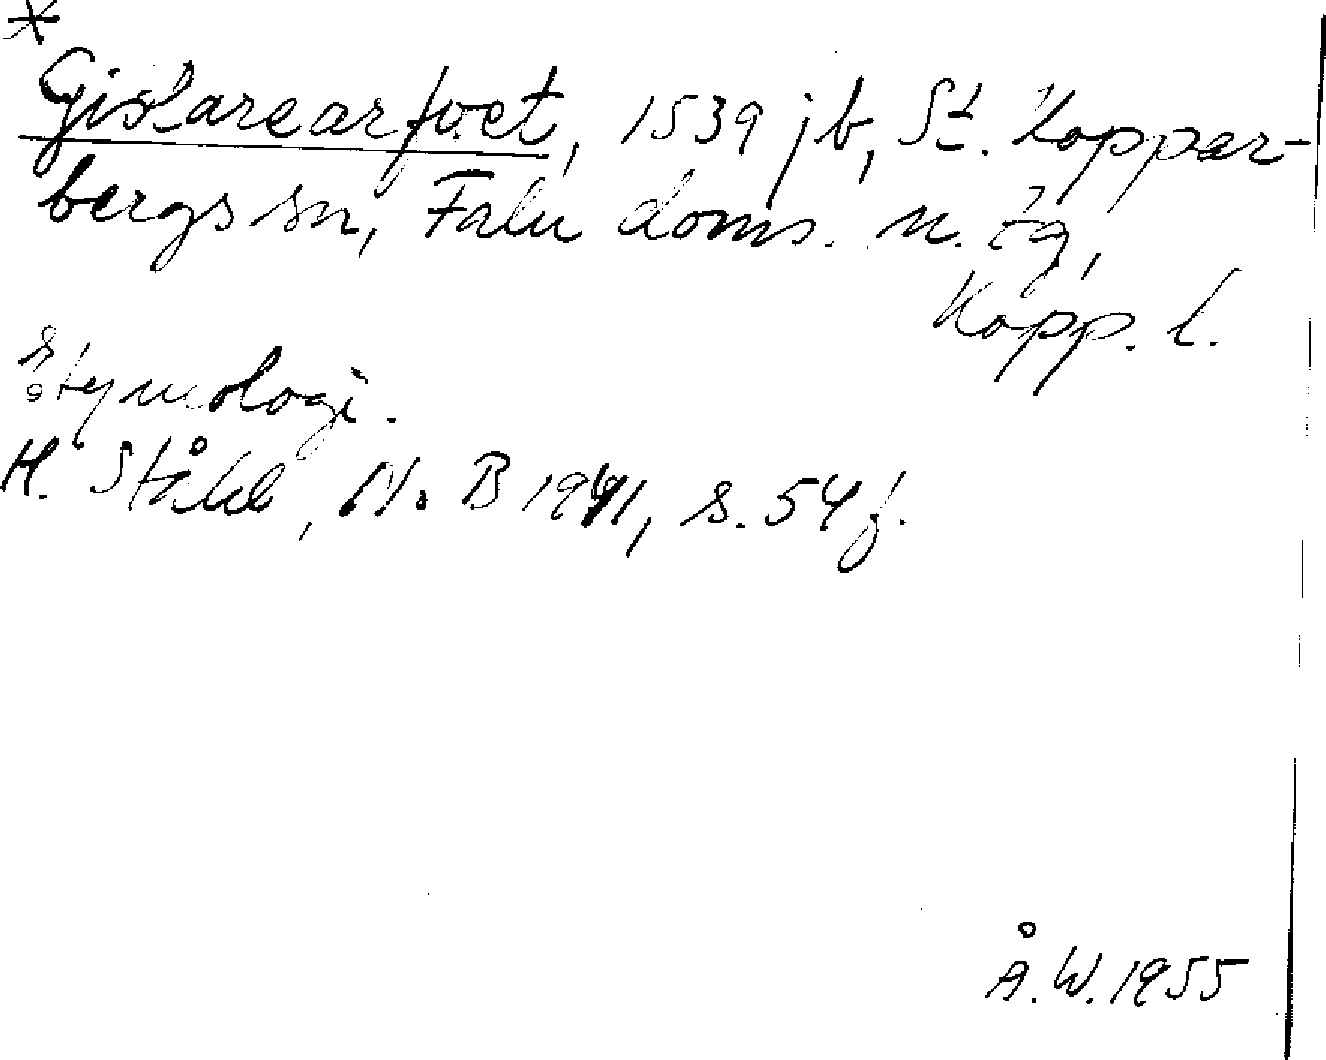 *
Gislarearfvet, 1539 jb, St. Koppar-
bergs sn, Falu doms. n. tg,
Kopp. l.
Etymologi.
H. Ståhl, N. B 1941, s. 54 f.
Å. W. 1955